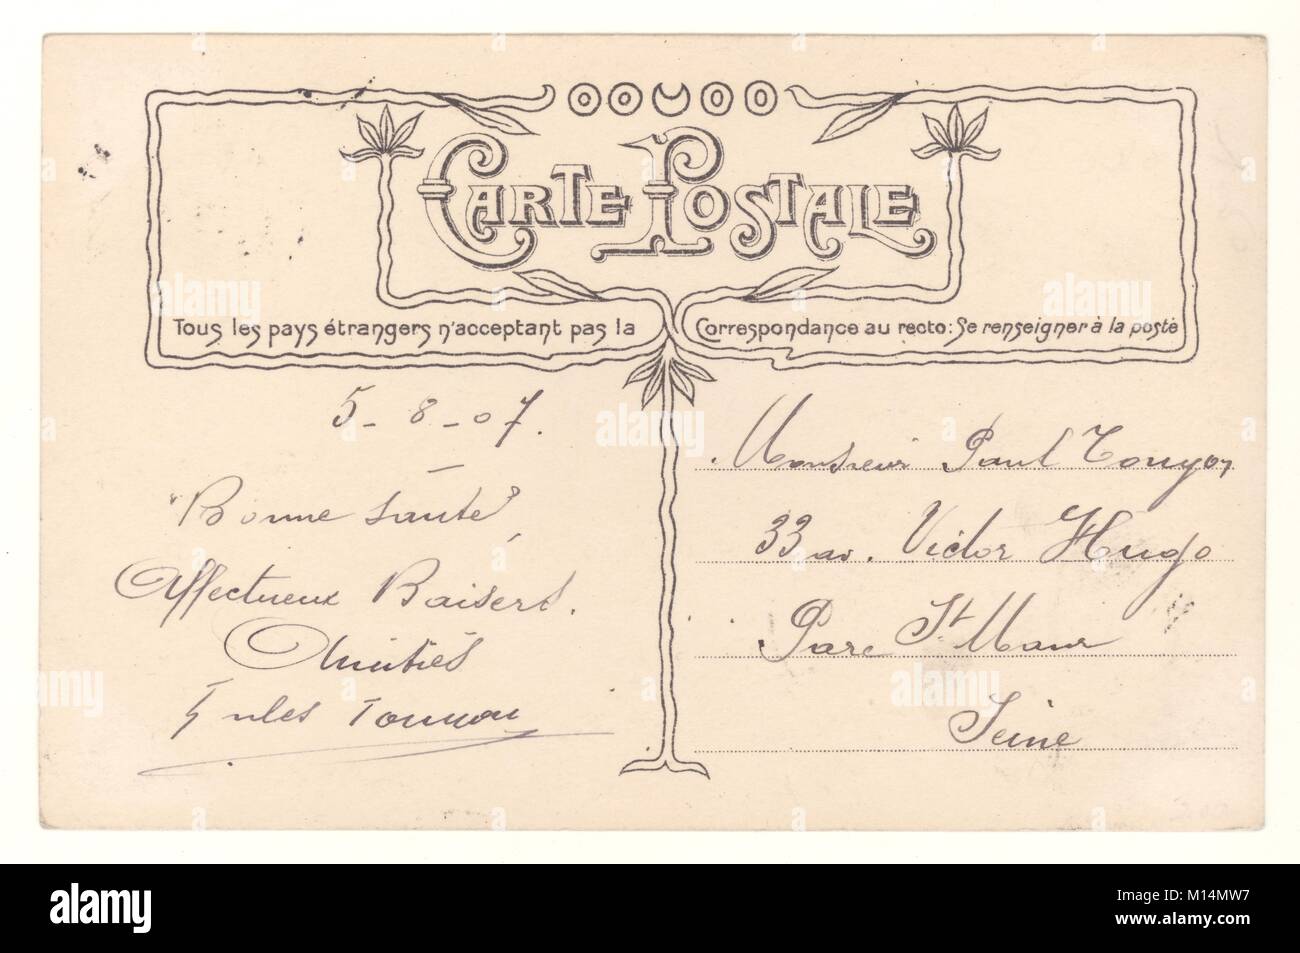 CARTE POSTALE
Tous les pays étrangers n'acceptent pas la Correspondance au recto: Se renseigner à la poste
5-8-07.
"Bonne santé"
Affectueux Baisers.
Amitiés
Jules
Monsieur Paul Touyon
33 av. Victor Hugo
Parc St Maur
Seine
alamy
alamy
Image ID: M14MW7
www.alamy.com